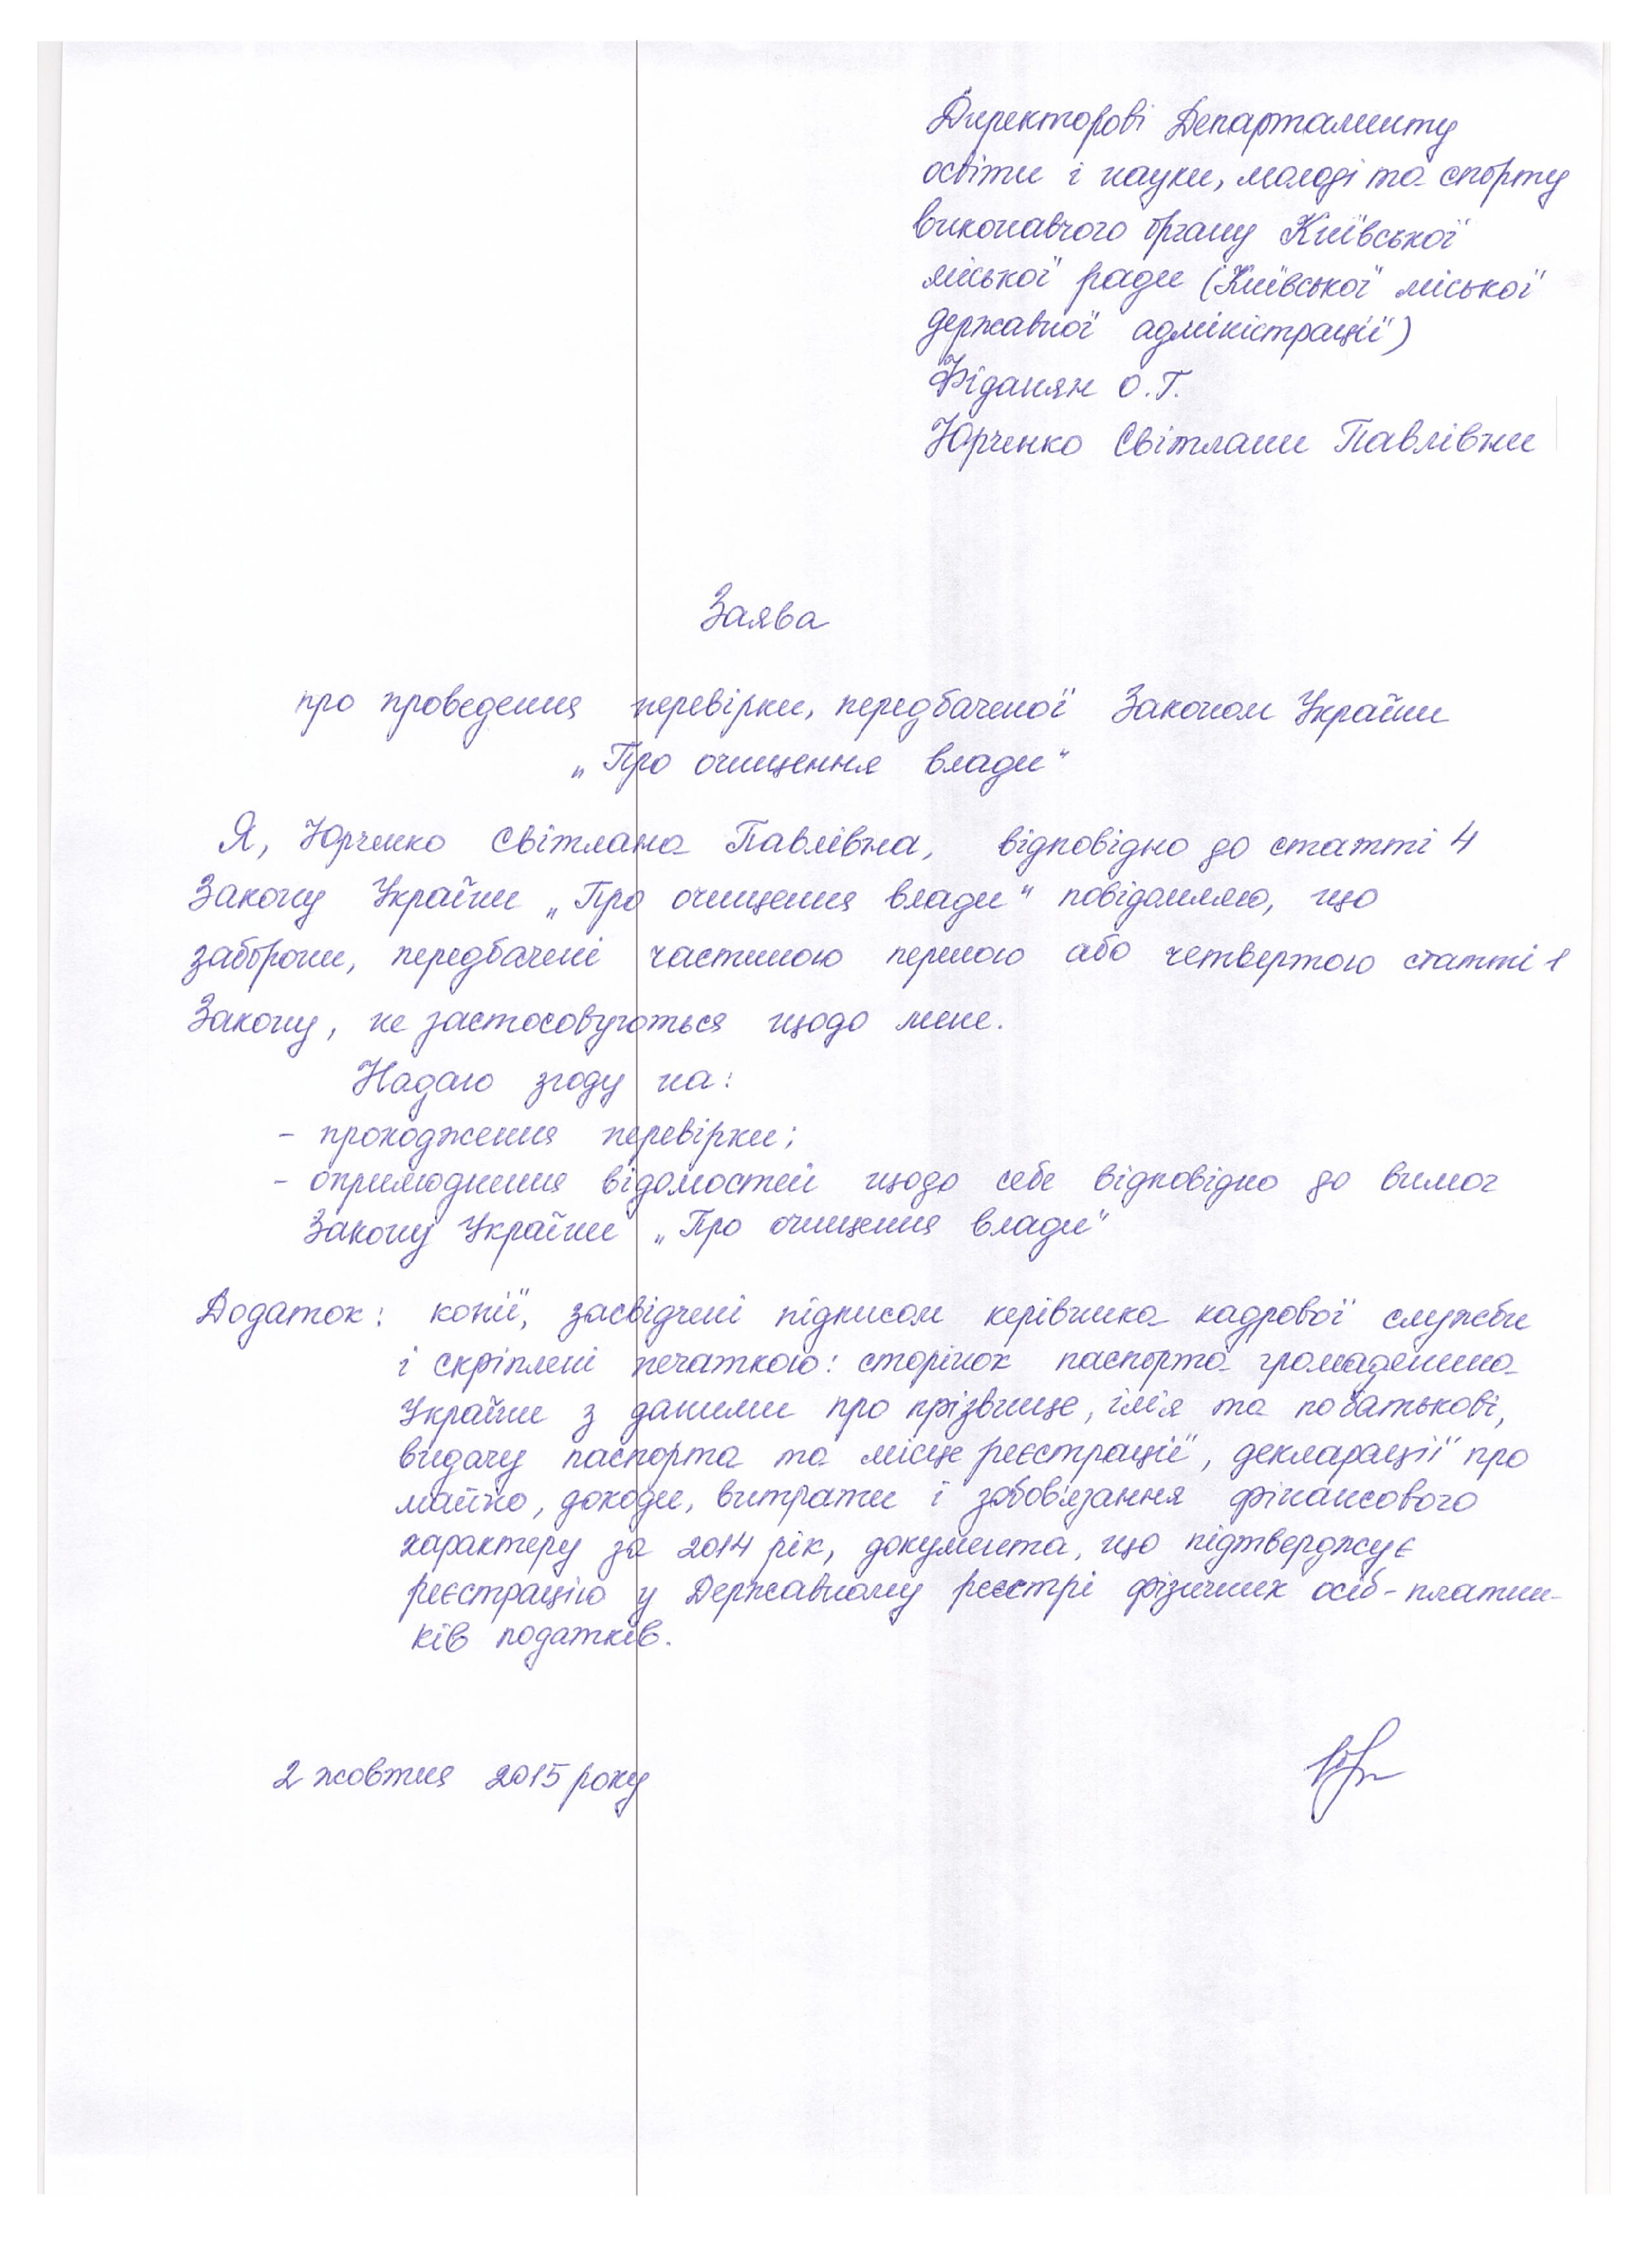 Директорові Департаменту
освіти і науки, молоді та спорту
виконавчого органу Київської
міської ради (Київської міської
державної адміністрації)
Фіданян О.Г.
Юрченко Світлани Павлівни
Заява
про проведення перевірки, передбаченої Законом України
„Про очищення влади“
Я, Юрченко Світлана Павлівна, відповідно до статті 4
Закону України „Про очищення влади“ повідомляю, що
заборони, передбачені частиною першою або четвертою статті 1
Закону, не застосовуються щодо мене.
Надаю згоду на:
- проходження перевірки;
- оприлюднення відомостей щодо себе відповідно до вимог
Закону України „Про очищення влади“
Додаток: копії, засвідчені підписом керівника кадрової служби
і скріплені печаткою: сторінок паспорта громадянина
України з даними про прізвище, ім'я та по батькові,
видачу паспорта та місце реєстрації, декларації про
майно, доходи, витрати і зобов'язання фінансового
характеру за 2014 рік, документа, що підтверджує
реєстрацію у Державному реєстрі фізичних осіб-платни-
ків податків.
2 жовтня 2015 року